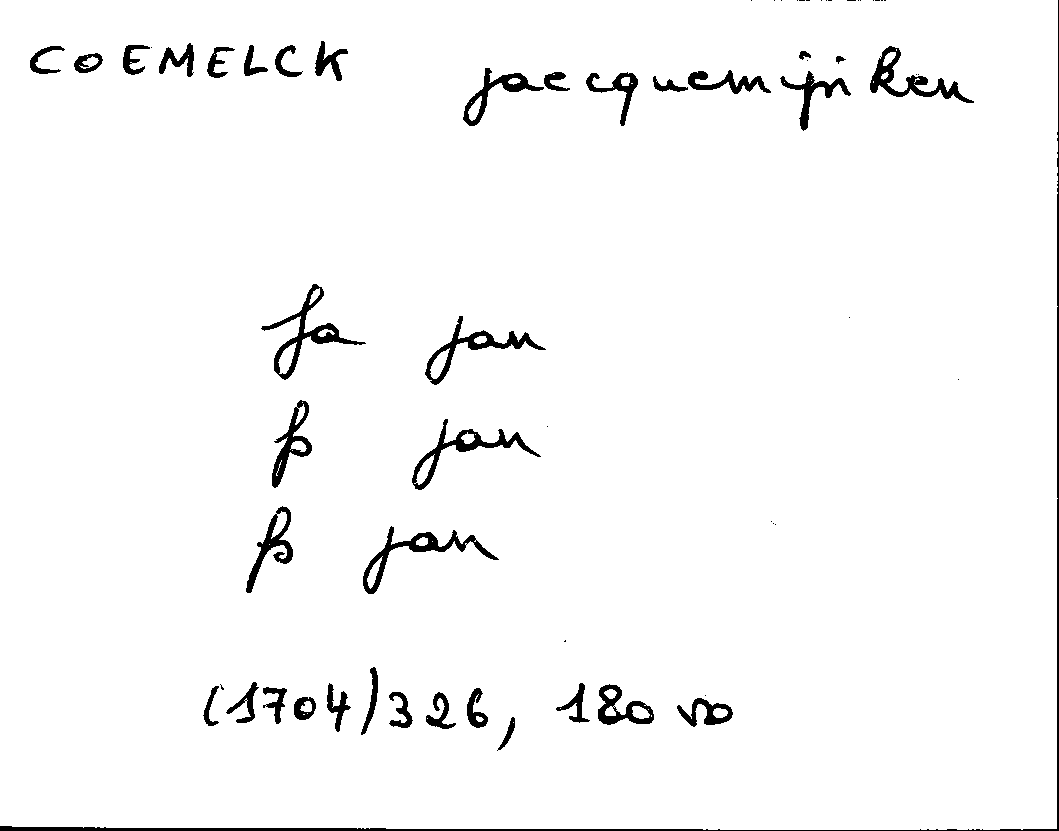 COEMELCK jacquemijnken
fa jan
fs jan
fs jan
(1704)326, 180 vo